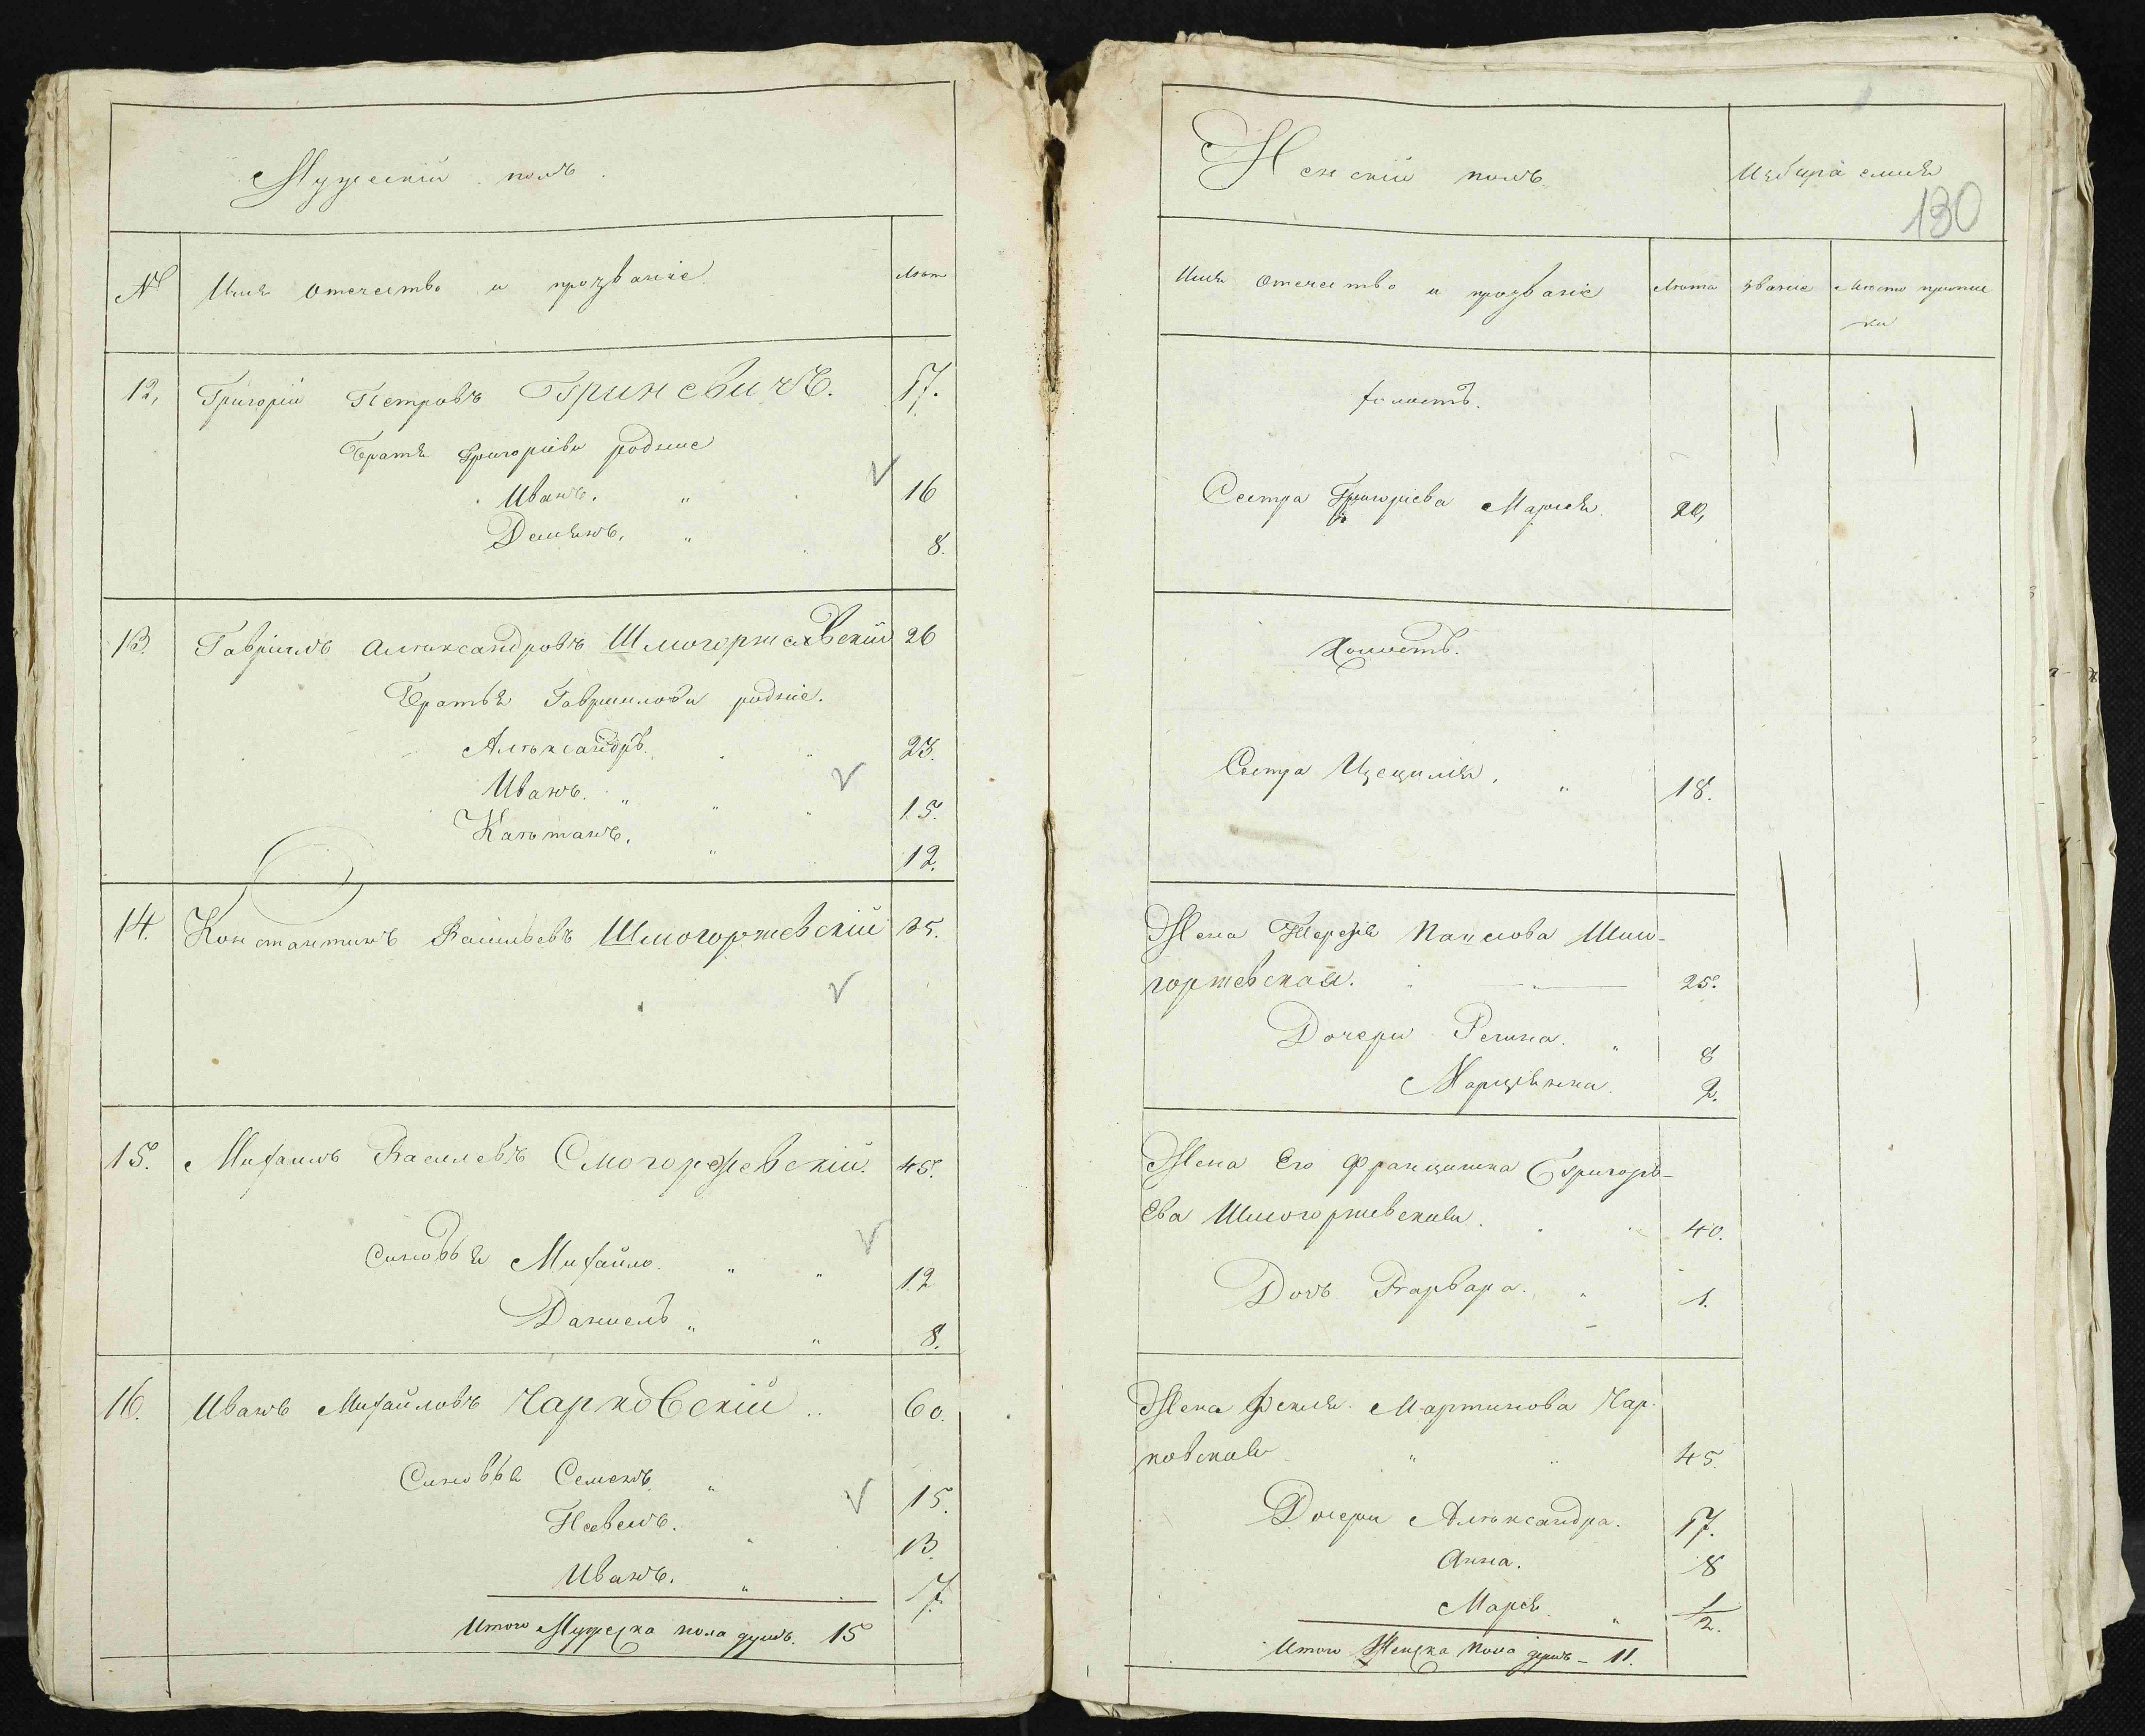 Мужескій полъ.
№
Имя отечество и прозваніе
Лѣт
12,
Григорій Петровъ Гриневичъ.
17.
Братя Григоріеви родние
Иванъ. "
16
Демянъ. "
8.
13.
Гавріилъ Александровъ Шмогоржевскій
26
Братья Гавриилови родніе.
Александръ.
23.
Иванъ. "
15.
Каэтанъ. "
12.
14.
Константинъ Васильевъ Шмогоржевскій
35.
15.
Михаилъ Василевъ Смогоржевскій.
45.
Синовья Михайло. "
12
Даниелъ "
8.
16.
Иванъ Михайловъ Чарковскій ..
60.
Синовья Семенъ. "
15.
Павелъ. "
13.
Иванъ. "
7.
Итого Мужеска пола душъ. 15
Женскій полъ.
130
Имя отечество и прозваніе
Лѣта
званіе
Мѣсто припис
ки
холостъ.
Сестра Григоріева Марися.
20,
Холостъ.
Сестра Цецилія. "
18.
Жена Терезя Шмо-
горжевская.
25.
Дочери Регина. "
8
Марцѣянна.
2.
Жена Его Францишка Григорь-
Ева Шмогоржевская.
40.
Дочь Варвара. "
1.
Жена Фекля Мартинова Чар-
ковская "
45.
Дочери Александра.
17.
Анна.
8
Марся. "
1/2.
Итого Женска пола душъ – 11.